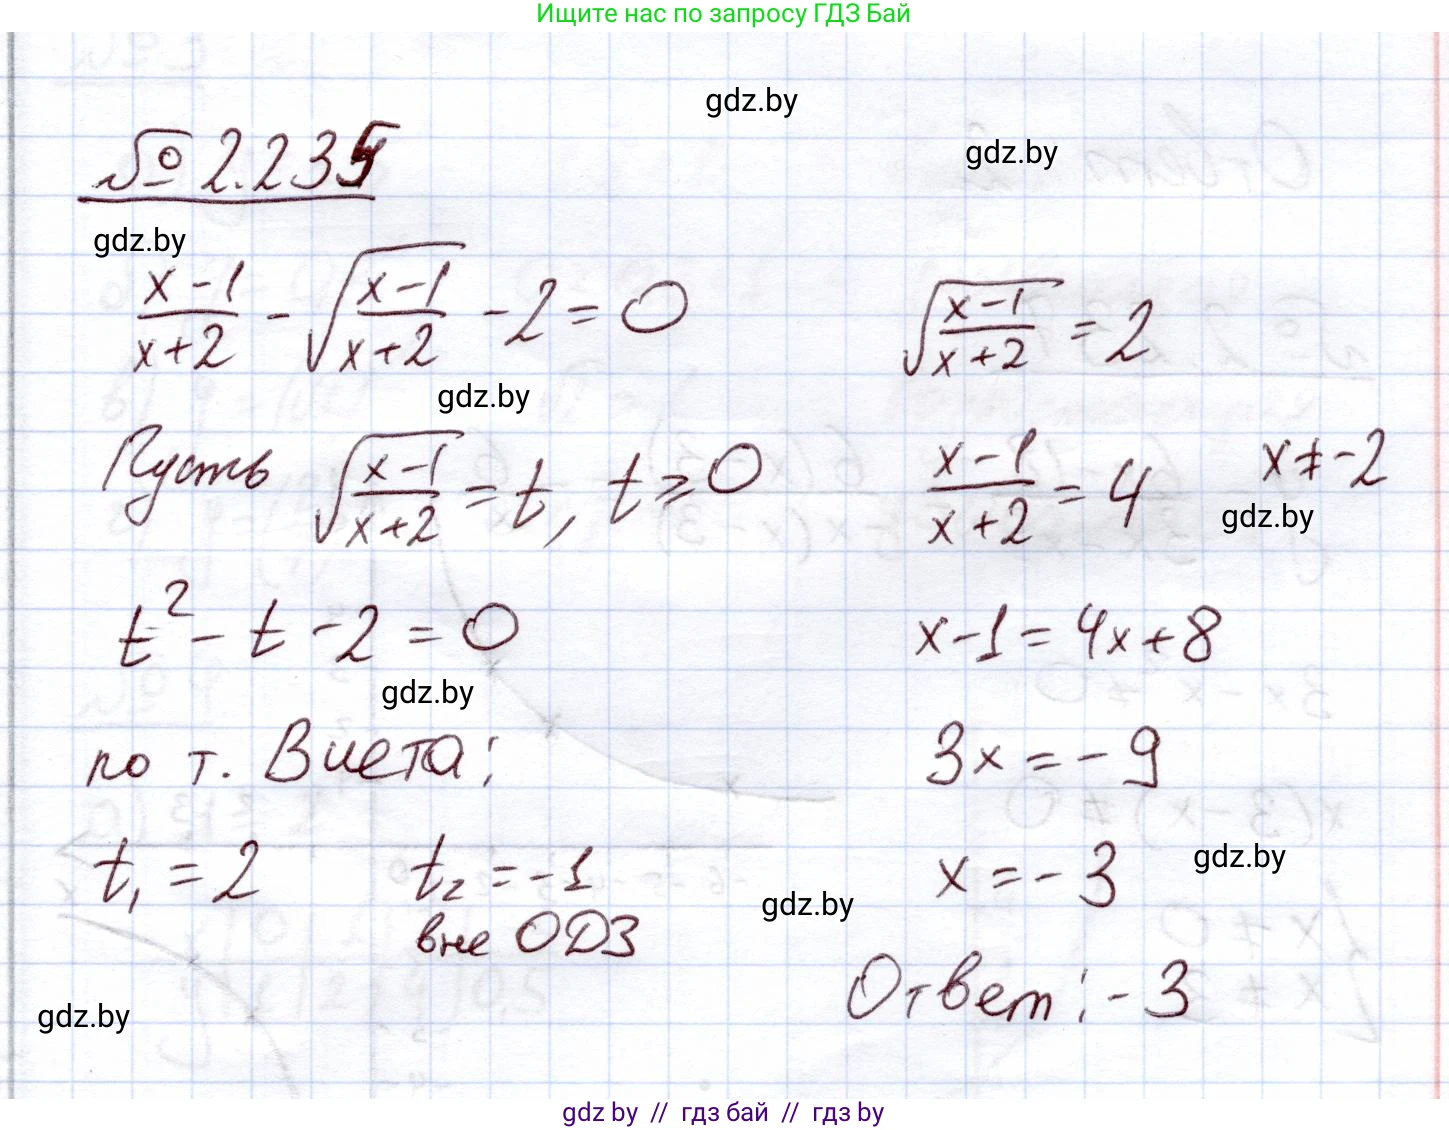 Ищите нас по запросу ГДЗ Бай
gdz.by
gdz.by
№ 2.235
gdz.by
(x-1)/(x+2) - √((x-1)/(x+2)) - 2 = 0
gdz.by
Пусть √((x-1)/(x+2)) = t, t ≥ 0
t² - t - 2 = 0
gdz.by
по т. Виета:
t₁ = 2    t₂ = -1
вне ОДЗ
gdz.by
√((x-1)/(x+2)) = 2
(x-1)/(x+2) = 4    x ≠ -2
gdz.by
x-1 = 4x+8
3x = -9
x = -3
gdz.by
gdz.by
Ответ: -3
gdz.by // гдз бай // гдз by